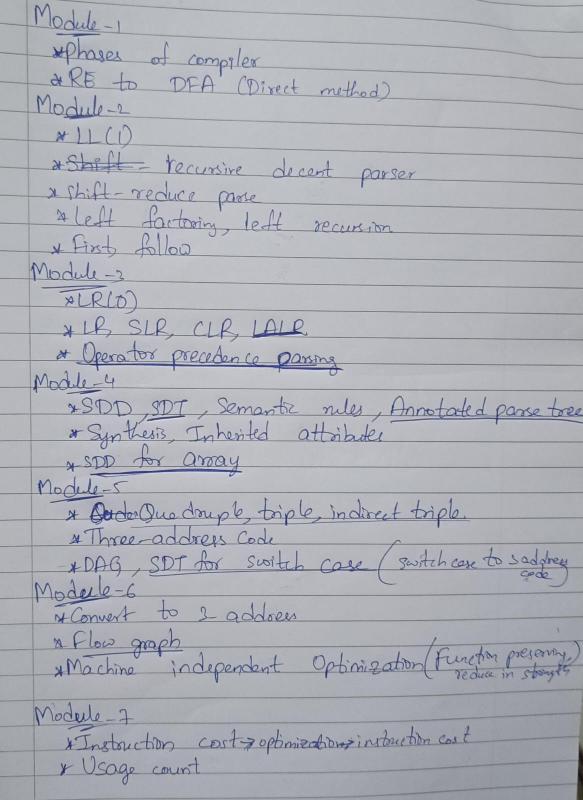 Module-1
*Phases of compiler
*RE to DFA (Direct method)
Module-2
* LL(1)
* Shift - recursive decent parser
* shift-reduce parse
* left factoring, left recursion
* First, follow
Module-3
*LR(0)
* LR, SLR, CLR, LALR
* Operator precedence parsing
Module-4
*SDD, SDT, Semantic rules, Annotated parse tree
* Synthesis, Inherited attributes
* SDD for array
Module-5
* Quadruple, triple, indirect triple.
*Three-address code
*DAG, SDT for switch case (switch case to 3 address code)
Module-6
*Convert to 3 address
* Flow graph
*Machine independent Optimization (Function preserving, reduce in strength
Module-7
*Instruction cost→optimization→instruction cost
* Usage count